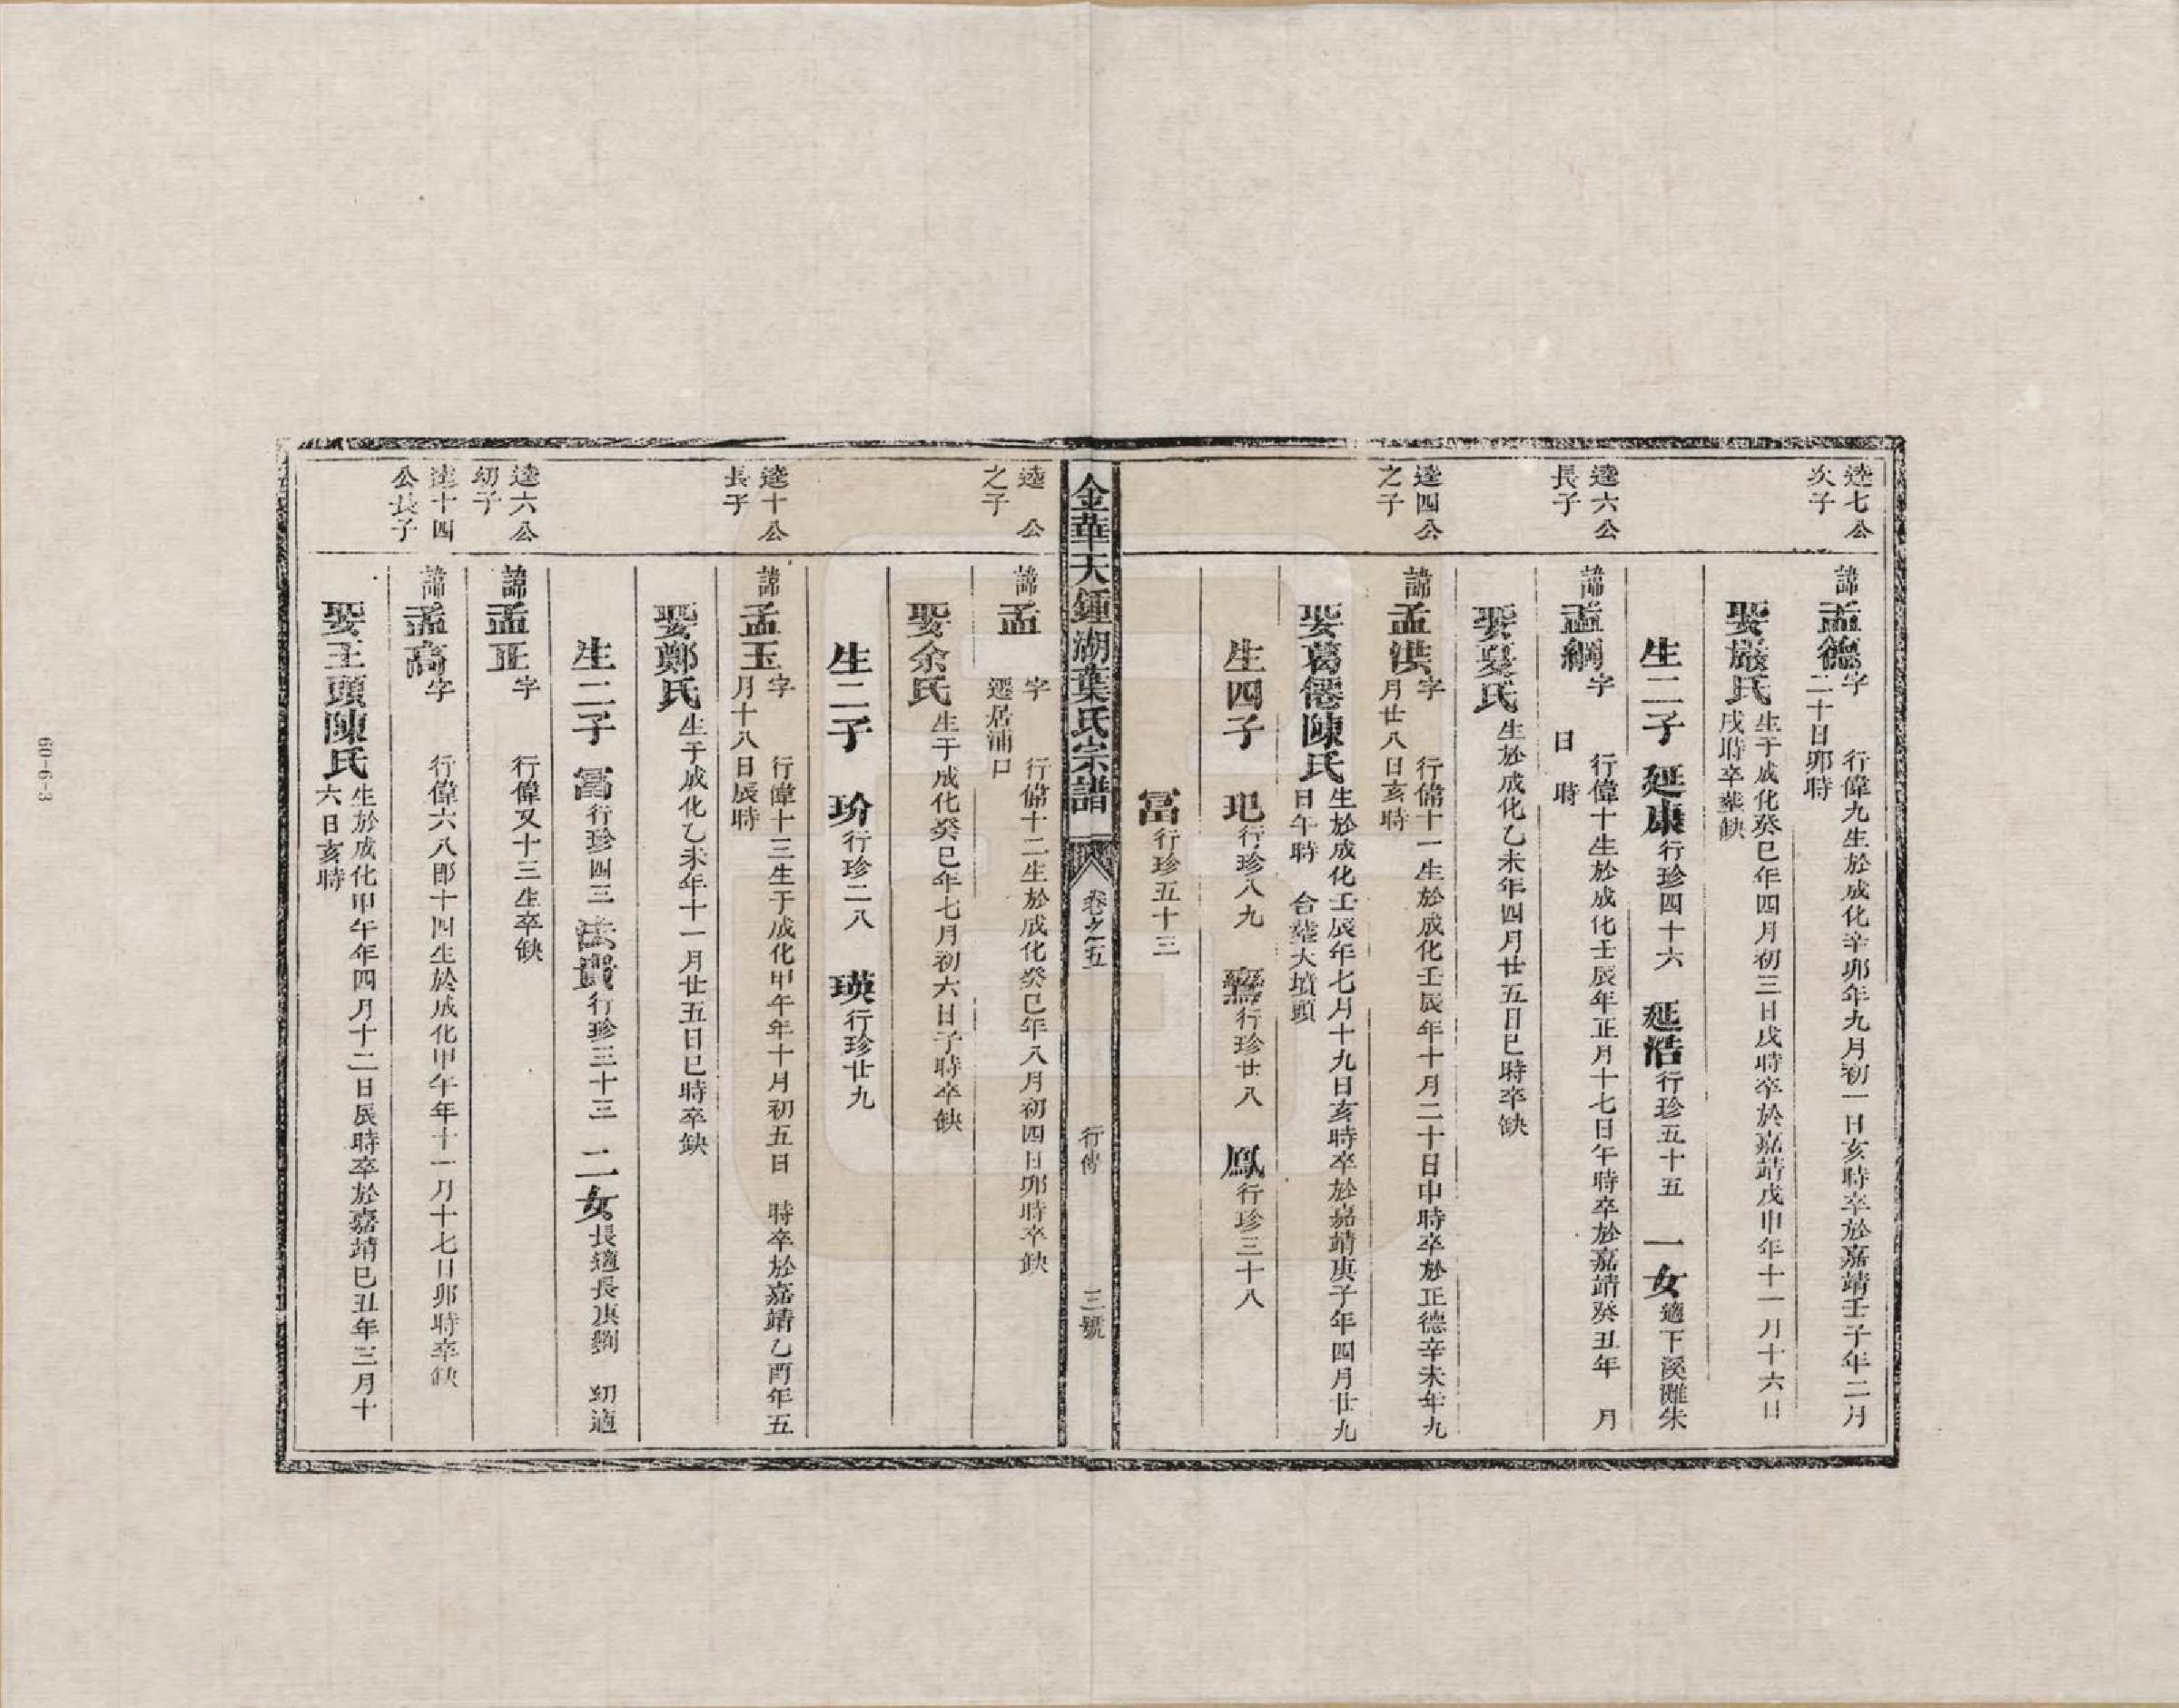 逵七公
次子
諱孟德字 行偉九生於成化辛卯年九月初一日亥時卒於嘉靖壬子年二月
二十日卯時
娶嚴氏生于成化癸巳年四月初三日戌時卒於嘉靖戊申年十一月十六日
戌時卒葬缺
生二子 延康行珍四十六 延浩行珍五十五 一女適下溪灘朱
逵六公
長子
諱孟綱字 行偉十生於成化壬辰年正月十七日午時卒於嘉靖癸丑年 月
日 時
娶夏氏生於成化乙未年四月廿五日巳時卒缺
逵四公
之子
諱孟洪字 行偉十一生於成化壬辰年十月二十日申時卒於正德辛未年九
月廿八日亥時
娶葛僊陳氏生於成化壬辰年七月十九日亥時卒於嘉靖庚子年四月廿九
日午時 合葬大墳頭
生四子 玘行珍八九 行珍廿八 鳳行珍三十八
富行珍五十三
金華天鍾湖葉氏宗譜 卷之五 行傳 三號
逵 公
之子
諱孟 字 行偉十二生於成化癸巳年八月初四日卯時卒缺
遷居浦口
娶余氏生于成化癸巳年七月初六日子時卒缺
生二子 玠行珍二八 瑛行珍廿九
逵十公
長子
諱孟玉字 行偉十三生于成化甲午年十月初五日 時卒於嘉靖乙酉年五
月十八日辰時
娶鄭氏生于成化乙未年十一月廿五日巳時卒缺
生二子 富行珍四三 法貴行珍三十三 二女長適長庚劉 幼適
逵六公
幼子
諱孟正字 行偉又十三生卒缺
逵十四
公長子
諱孟高字 行偉六八郎十四生於成化甲午年十一月十七日卯時卒缺
娶王頭陳氏生於成化甲午年四月十二日辰時卒於嘉靖巳丑年三月十
六日亥時
60-6-3